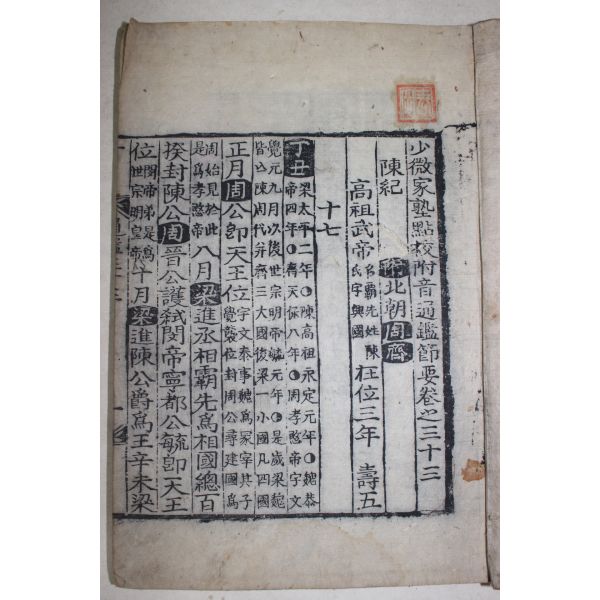 少微家塾點校附音通鑑節要卷之三十三
陳紀 附北朝周齊
高祖武帝 名霸先姓陳氏字興國 在位三年 壽五
十七
丁丑 梁太平二年○陳高祖永定元年○魏恭帝四年○齊天保八年○周孝愍帝宇文覺元九月以後世宗明帝毓元年○是歲梁魏皆亡陳周代并齊三大國後梁一小國凡四國
正月周公卽天王位 宇文泰事魏爲冢宰其子覺襲位封周公尋建國爲周始見於此是爲孝愍帝 八月梁進丞相霸先爲相國總百
揆封陳公周晉公護弑閔帝寧都公毓卽天王
位 閔帝弟是爲世宗明皇帝 十月梁進陳公爵爲王辛未梁